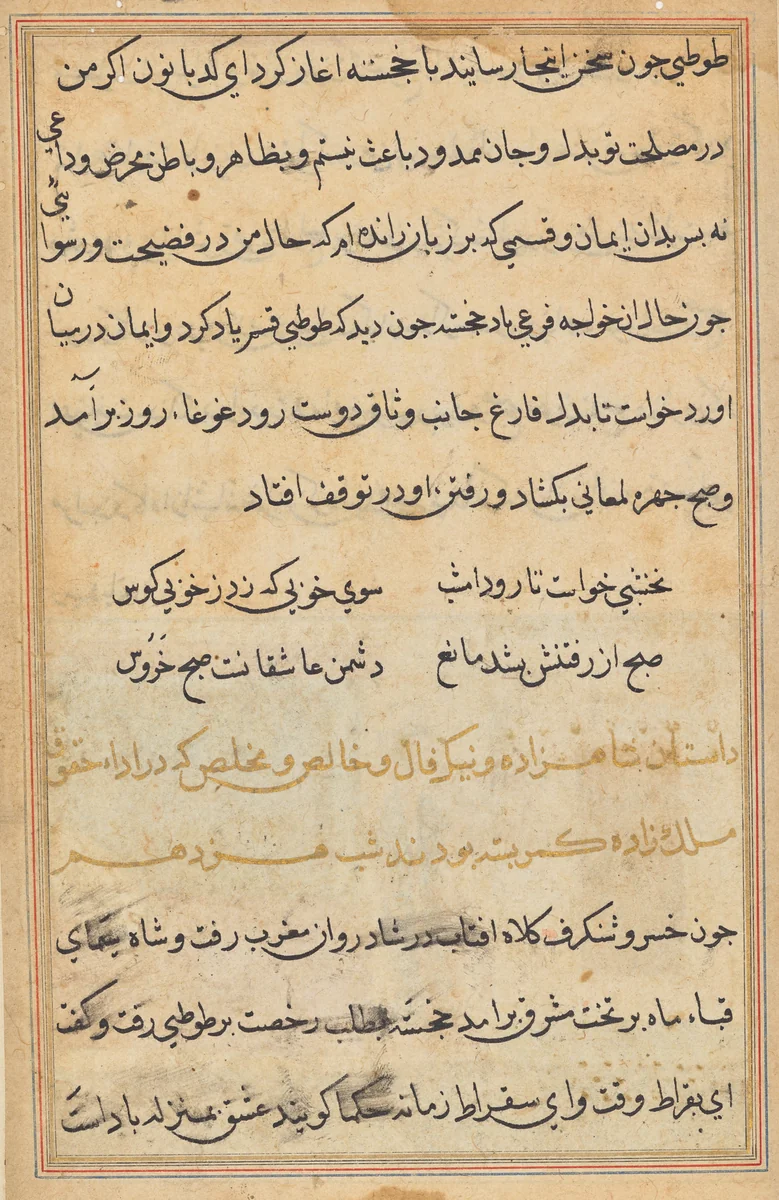 طوطي جون سخن اينجا رسانيد با خجسته اغاز كرد اي كدبانو ن اكر من
در مصلحت تو بدل و جان ممد و د باعث نيستم و بظاهر و باطن محرض و داعي
نه بس بدان ايمان و قسمي كه بر زبان رانده ام كه حال من در فضيحت و رسوايي
جون حال ان خواجه فرعي باد خجسته جون ديد كه طوطي قسم ياد كرد و ايمان درميان
اورد خواست تا بدل فارغ جانب وثاق دوست رود غوغاء روز برآمد
و صبح جهره لمعاني بكشاد و رفتن او در توقف افتاد
نخشبي خواست تا رود امشب سوي خوبي كه زد ز خوبي كوس
صبح از رفتنش بشد مانع دشمن عاشقانست صبح خروس
داستان شاهزاده و نيك فال و خالص و مخلص كه در اداء حقوق
ملك زاده كمر بسته بودند شب هزدهم
جون خسرو شنكرف كلاه افتاب در شادروان مغرب رفت و شاه يغماي
قباء ماه بر تخت مشرق برامد خجسته بطلب رخصت بر طوطي رفت و كفت
اي بقراط وقت و اي سقراط زمانه حكما كويند عشق بمنزله باداست